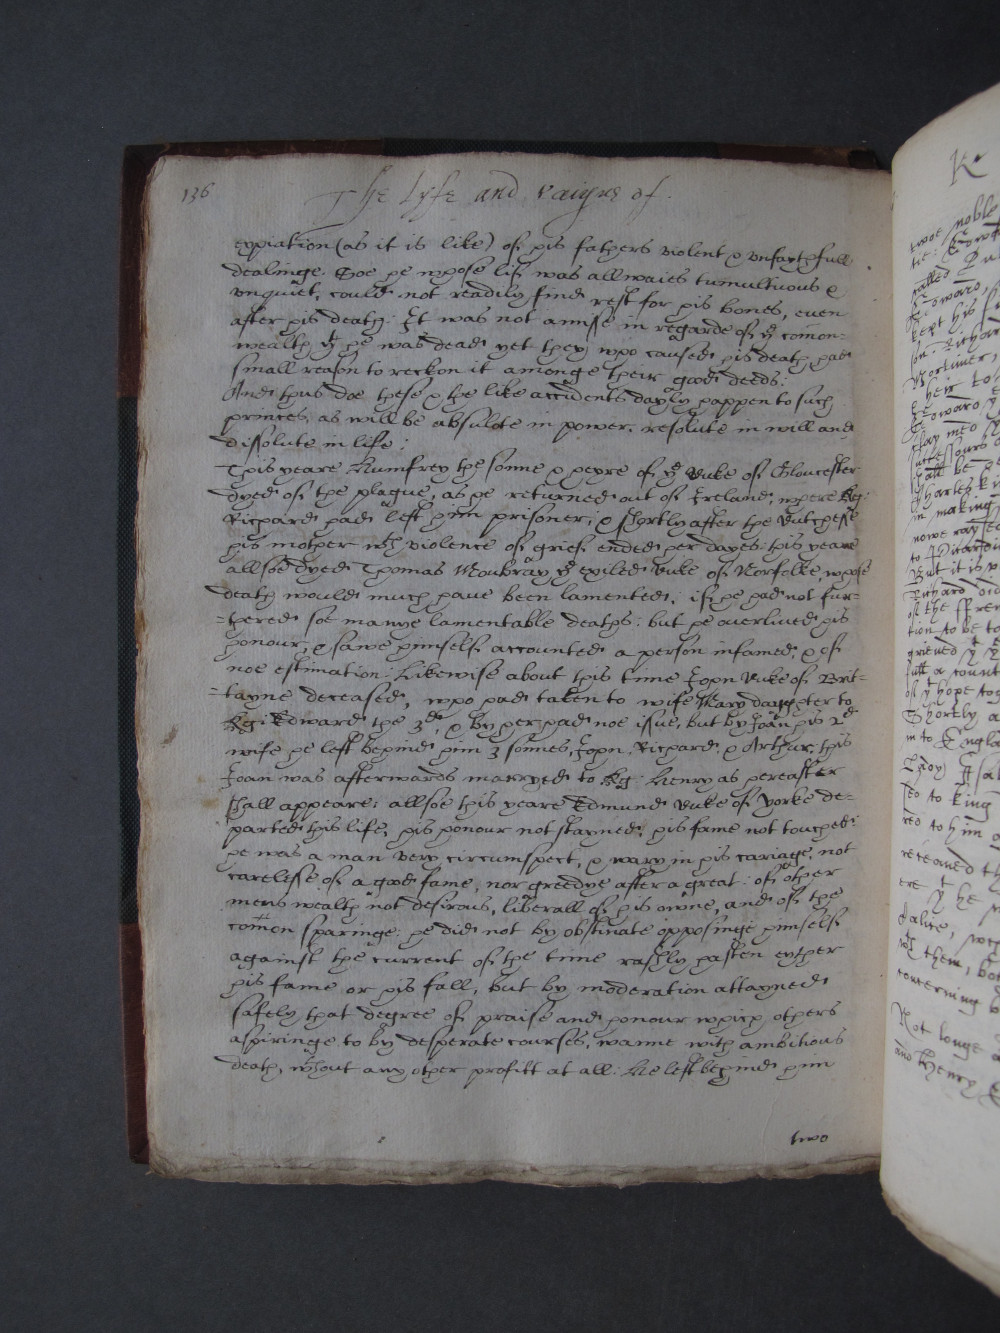 136
The lyfe and raigne of
expiation (as it is like) of his fathers violent & unfaythfull
dealinge. Soe he whose lif was allwaies tumultuous &
unquiet, could not readily find rest for his bones, even
after his death. It was not amisse in regarde of ye comon=
wealth yt he was dead yet they who caused his death, had
small reason to reckon it amonge their good deeds:
And thus doe these & the like accidents dayly happen to such
princes, as will be absolute in power, resolute in will and
dissolute in life:
This yeare Humfrey the sonne & heyre of ye Duke of Gloucester
dyed of the plague, as he returned out of Ireland; where Kg:
Richard had left him prisoner; & shortly after the Dutchesse
his mother wth violence of grief ended her dayes: this yeare
allsoe dyed Thomas Moubray ye exiled Duke of Norfolke, whose
death would much have been lamented; if he had not fur=
=thered soe manye lamentable deaths: but he overlived his
honour, & sawe himself accounted a person infamed, & of
noe estimation: Likewise about this time John Duke of Brit=
=tayne deceased, who had taken to wife Mary daughter to
Kg: Edward the 3d, & by her had noe issue, but by Joan his 2d
wife he left behind him 3 sonnes, John, Richard, & Arthur: this
Joan was afterwards marryed to Kg: Henry as hereafter
shall appeare: allsoe this yeare Edmund Duke of Yorke de=
parted this life, his honour not stayned, his fame not touched:
he was a man very circumspect, & wary in his cariage, not
carelesse of a good fame, nor greedye after a great: of other
mens wealth not desirous, liberall of his owne, and of the
comon sparinge: he did not by obstinate opposinge himself
against the current of the time rashly hasten eyther
his fame or his fall, but by moderation attayned
safely that degree of praise and honour which others
aspiringe to by desperate courses, wanne with ambitious
death, wthout any other profitt at all: He left behind him
two